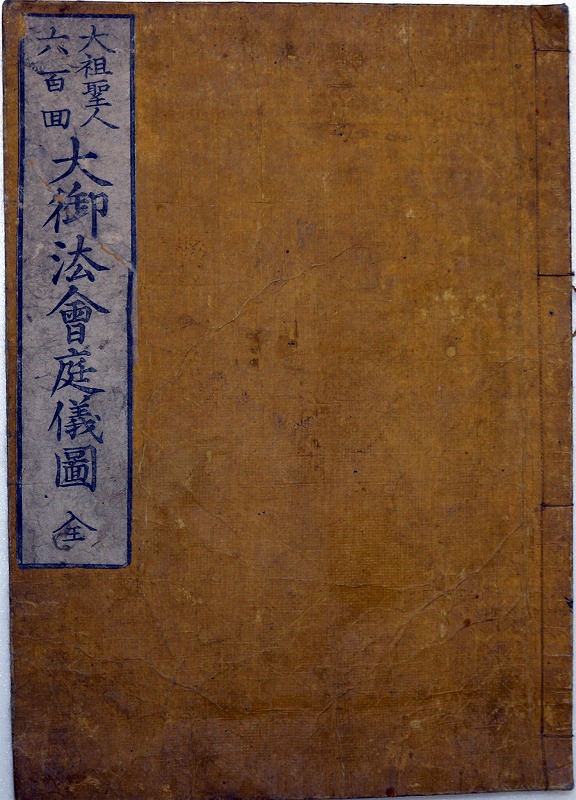 大祖聖人
六百回
大御法會庭儀圖 全